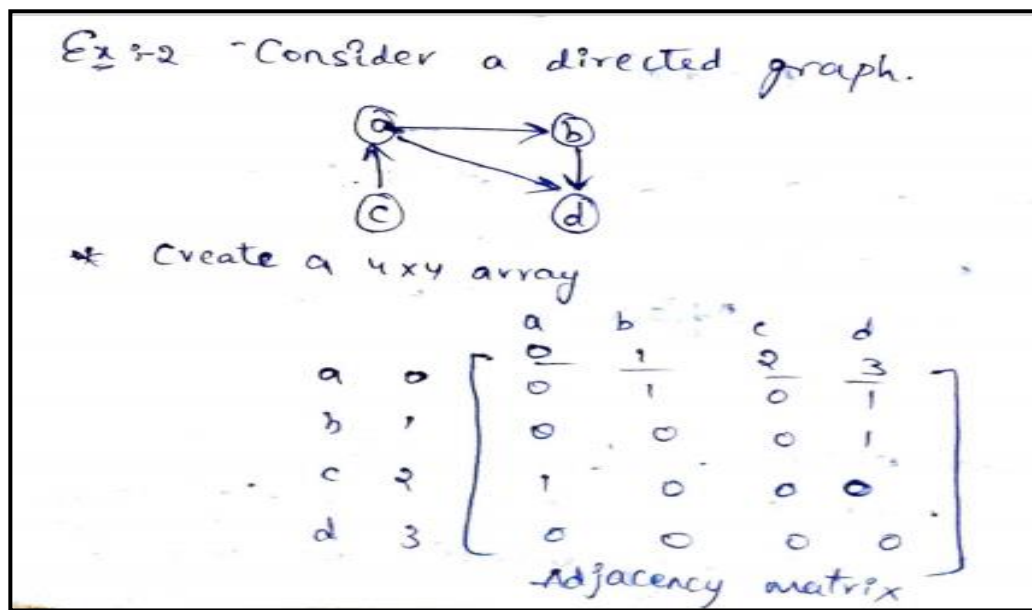 Ex :-2 - Consider a directed graph.
a b
c d
* Create a 4x4 array
a b c d
0 1 2 3
a 0 0 1 0 1
b 1 0 0 0 1
c 2 1 0 0 0
d 3 0 0 0 0
Adjacency matrix